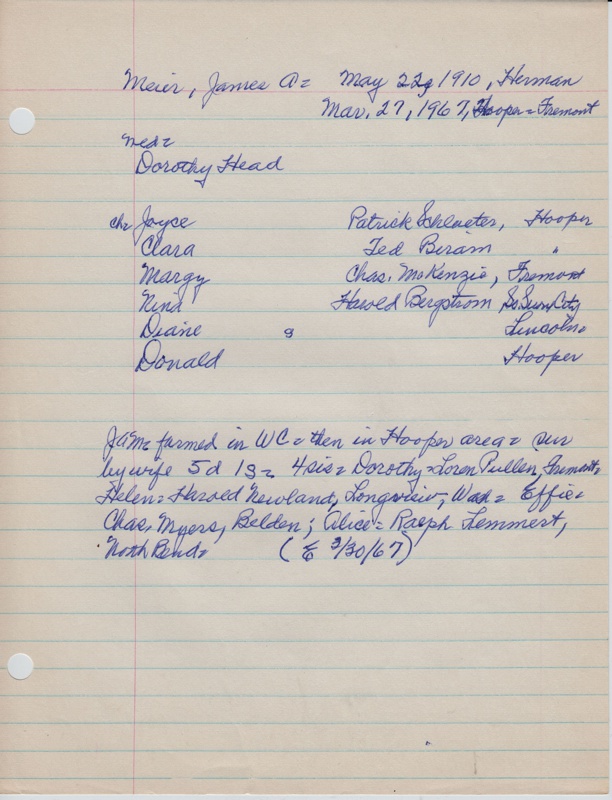 Meier, James A= May 22, 1910, Herman
Mar. 27, 1967, Hooper= Fremont
med=
Dorothy Head
ch= Joyce Patrick Schlueter, Hooper
Clara Ted Beram "
Margy Chas. McKenzie, Fremont
Nina Harold Bergstrom So Sioux City
Diane s Lincoln=
Donald Hooper
JAM= farmed in WC= then in Hooper area= sur
by wife 5d 1s= 4sis= Dorothy=Loren Pullen, Fremont=
Helen= Harold Newland, Longview, Wash= Effie=
Chas. Myers, Belden; Alice= Ralph Lemmert,
North Bend= (E 3/30/67)